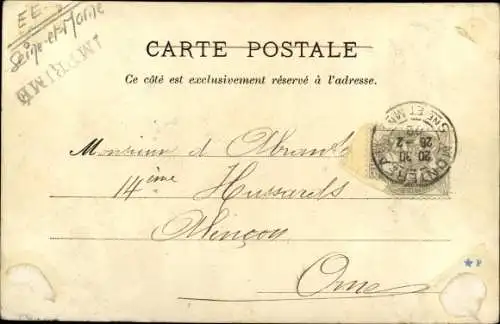 EE
Seine-et-Marne
IMPRIMÉ
CARTE POSTALE
Ce côté est exclusivement réservé à l'adresse.
Monsieur d'Abrantès
14ème Hussards
Alençon
Orne
MONTEREAU
20 30
26 - 2
SNE ET MNE
* 8